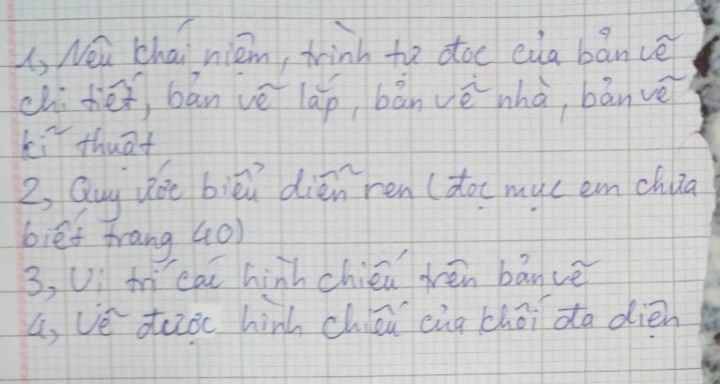 1, Nêu khái niệm, trình tự đọc của bản vẽ
chi tiết, bản vẽ lắp, bản vẽ nhà, bản vẽ
kĩ thuật
2, Quy ước biểu diễn ren (đọc mục em chưa
biết trang 40)
3, Vị trí các hình chiếu trên bản vẽ
4, Vẽ được hình chiếu của khối đa diện